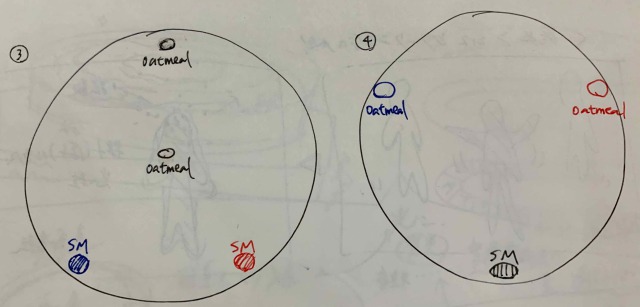 ③
oatmeal
oatmeal
SM
SM
④
oatmeal
oatmeal
SM